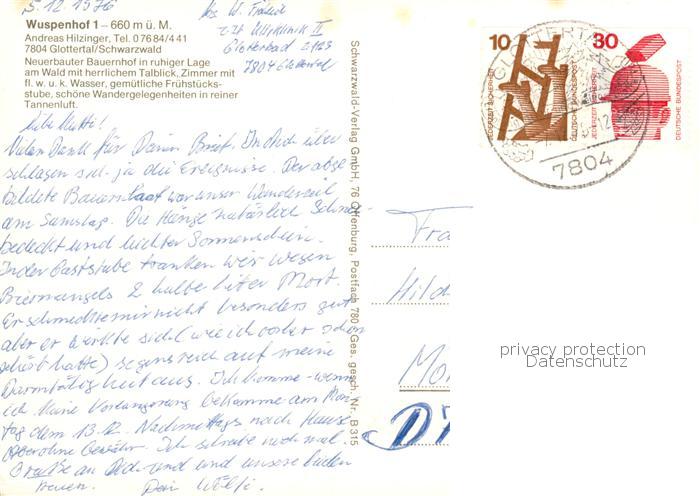 5.12.1976
Wuspenhof 1 – 660 m ü. M.
Andreas Hilzinger, Tel. 0 76 84/4 41
7804 Glottertal/Schwarzwald
Neuerbauter Bauernhof in ruhiger Lage
am Wald mit herrlichem Talblick, Zimmer mit
fl. w. u. k. Wasser, gemütliche Frühstücks-
stube, schöne Wandergelegenheiten in reiner
Tannenluft.
Abs. W.
zzt
Glotterbad
7804 Glottertal
Liebe Mutti!
Vielen Dank für Deinen Brief. In Oldb. über
schlagen sich ja die Ereignisse. Der abge
bildete Bauernhof war unser Wanderziel
am Samstag. Die Hänge natürlich Schnee-
bedeckt und leichter Sonnenschein.
In der Gaststube tranken wir wegen
Biermangels 2 halbe Liter Most.
Er schmeckte mir nicht besonders gut
aber er wirkte sich (wie ich vorher schon
gehört hatte) segensreich auf meine
Darmtätigkeit aus. Ich komme – wenn
ich keine Verlängerung bekomme am Mon
tag dem 13.12. Nachmittags nach Hause
ohne Gewähr. Ich schreibe noch mal.
Grüße an Dich und und unsere beiden
Dein
Schwarzwald-Verlag GmbH, 76 Offenburg, Postfach 780
Ges. gesch. Nr. B 315
10
30
DEUTSCHE BUNDESPOST
JEDERZEIT SICHERHEIT
DEUTSCHE BUNDESPOST
JEDERZEIT
GLOTTERTAL
7804
Fra
Hild
privacy protection
Datenschutz